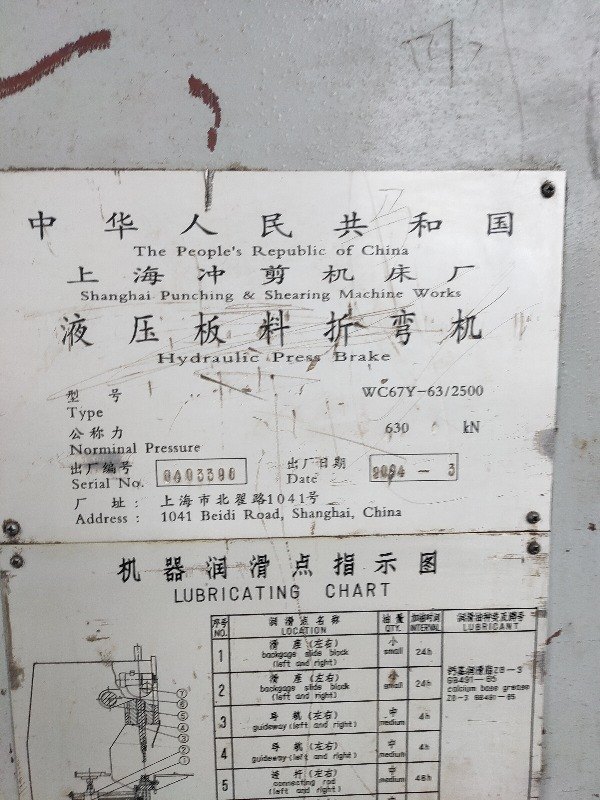 中华人民共和国
The People's Republic of China
上海冲剪机床厂
Shanghai Punching & Shearing Machine Works
液压板料折弯机
Hydraulic Press Brake
型号 WC67Y-63/2500
Type
公称力 630 kN
Norminal Pressure
出厂编号 0403390 出厂日期 2004 - 3
Serial No. Date
厂 址: 上海市北翟路1041号
Address: 1041 Beidi Road, Shanghai, China
机器润滑点指示图
LUBRICATING CHART
序号 润滑点名称 油量 加油时间 润滑油种类及牌号
NO. LOCATION QTY. INTERVAL LUBRICANT
1 滑座(左右) 小 24h
backgage slide block small
(left and right)
2 滑座(左右) 小 24h 钙基润滑脂ZG-3
backgage slide block small GB491-65
(left and right) calcium base grease
ZG-3 GB491-65
3 导轨(左右) 中 4h
guideway(left and right) medium
4 导轨(左右) 中 4h
guideway(left and right) medium
5 连杆(左右) 中 48h
connecting rod medium
(left and right)
⑦
⑥
⑤
④
③
②
①